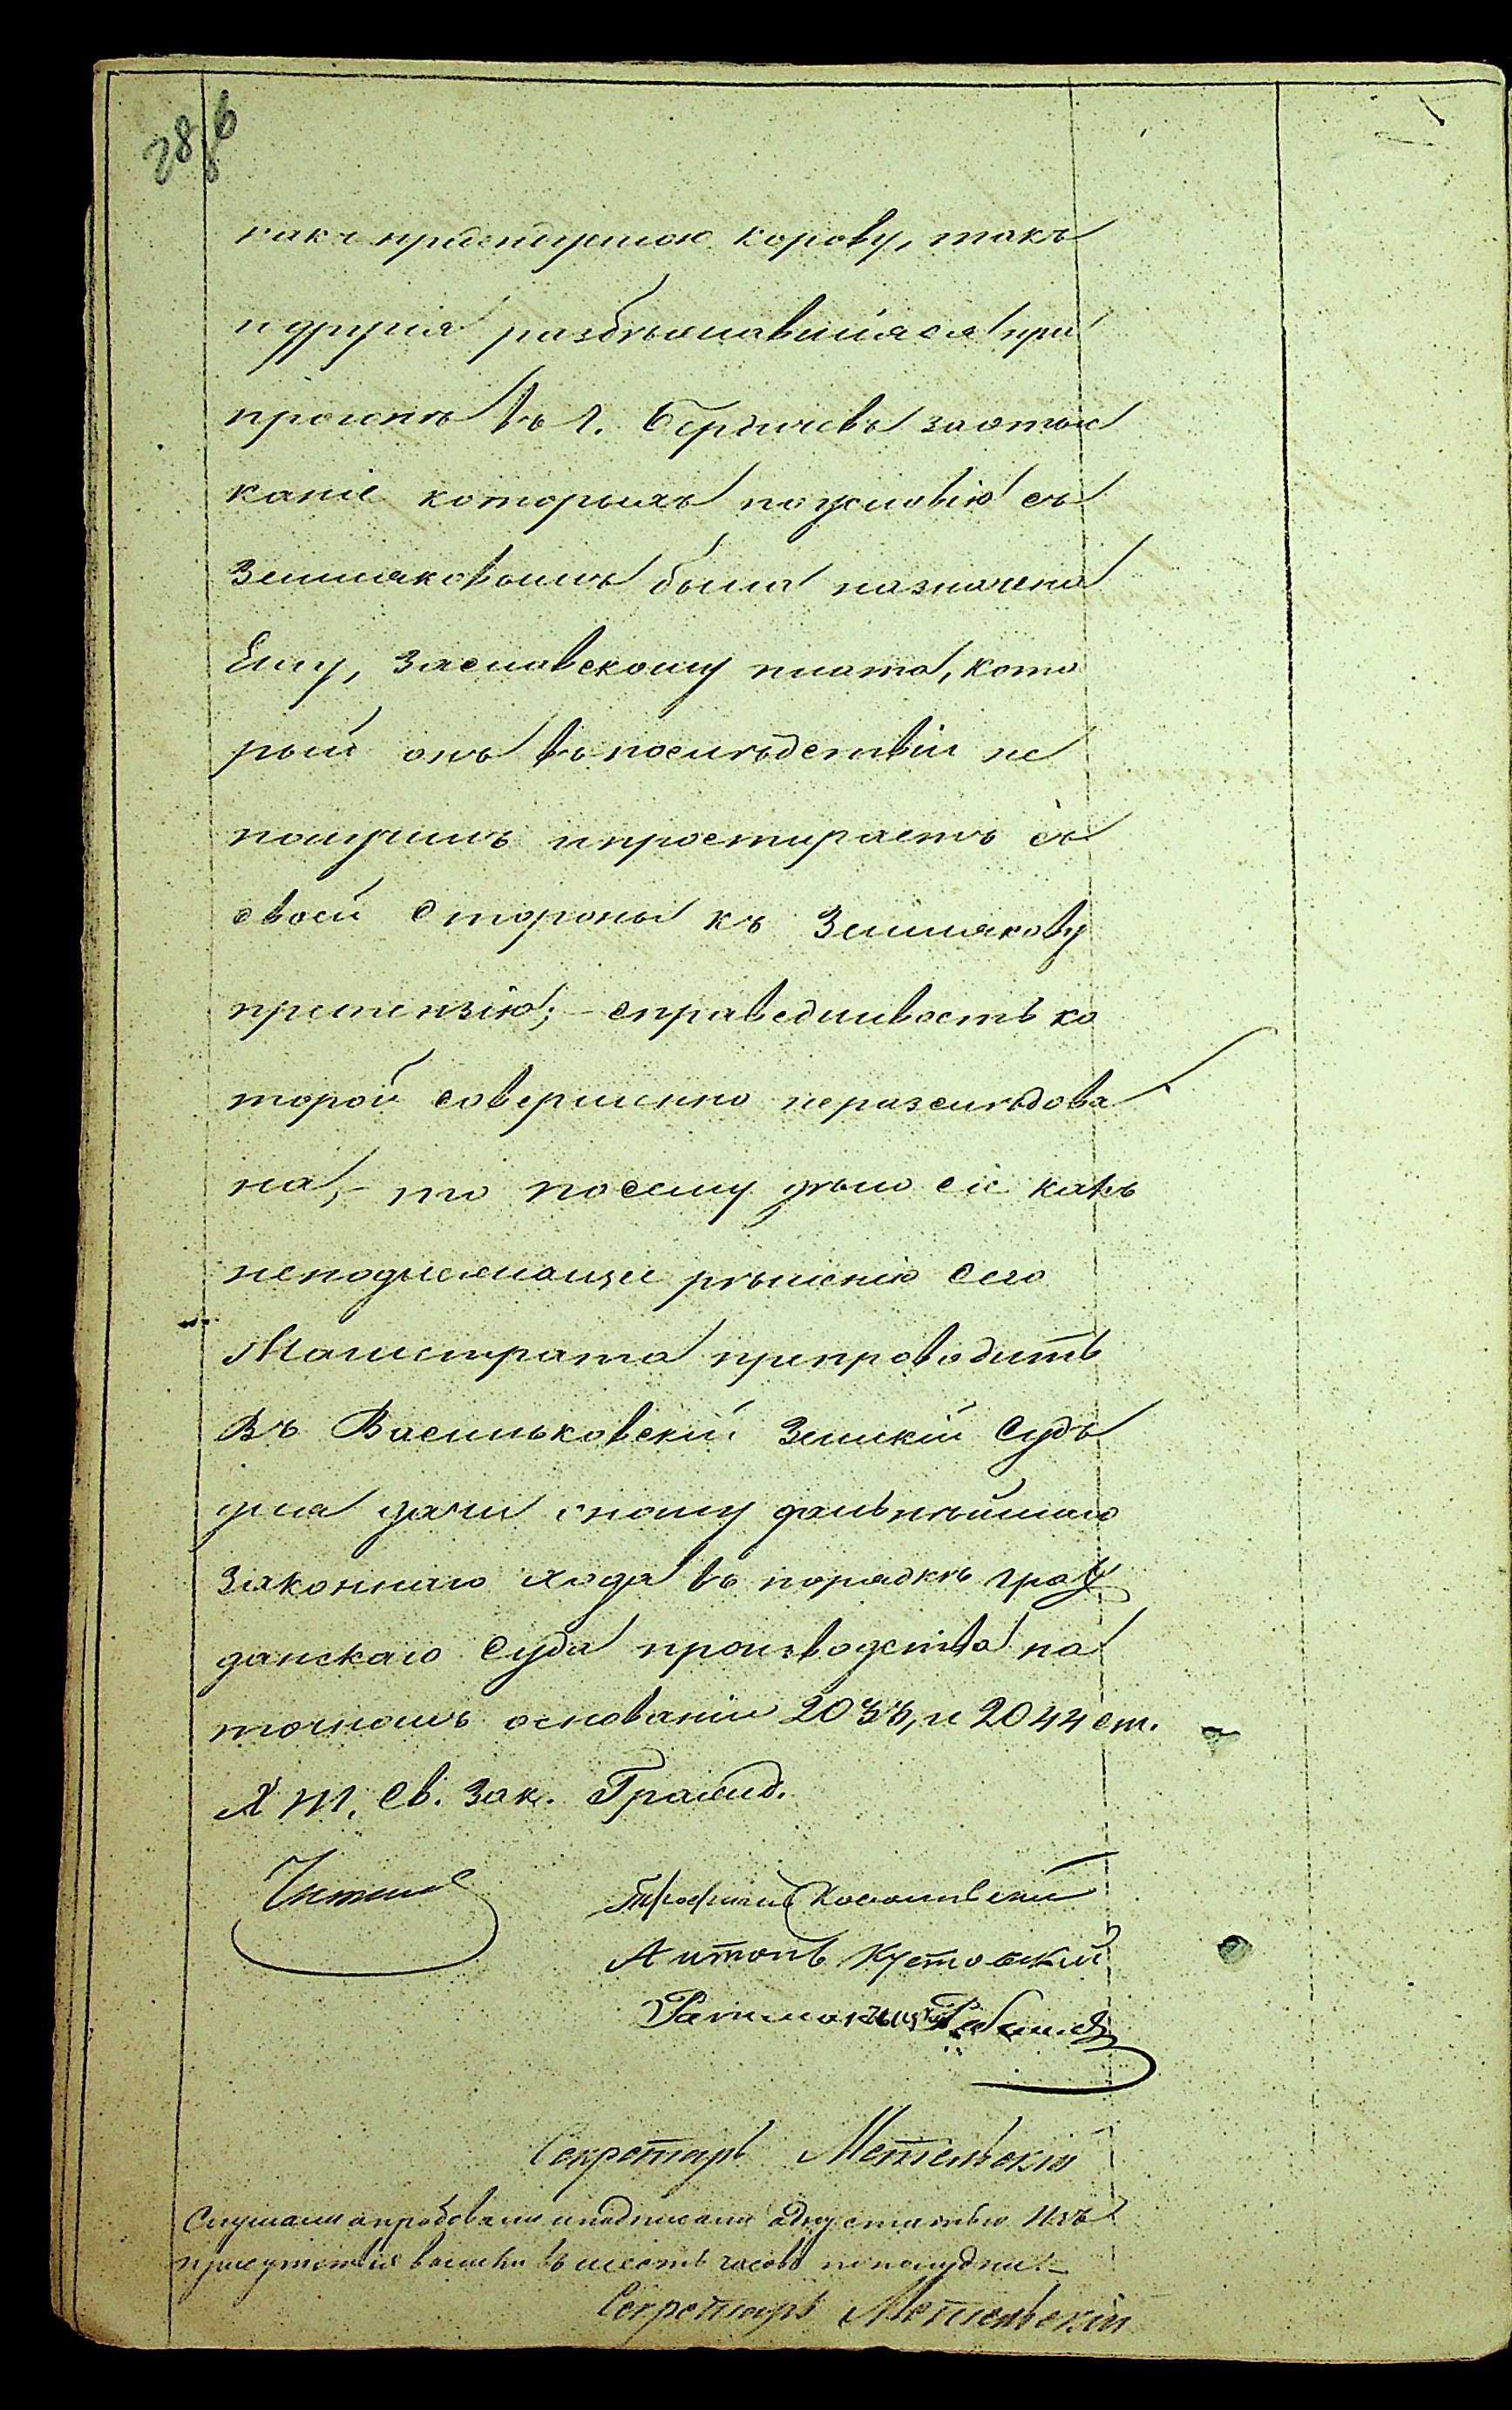 286
какъ придирмою корову, такъ
и другія разбѣжавшіяся при
прогонѣ въ г. Бердичевъ за отыс
каніе которыхъ по условію съ
Земляковымъ была назначена
Ему, Заславскому плата, кото
рый онъ въ послѣдствіи не
получилъ и простираетъ съ
своей стороны къ Землякову
претензію; - справедливость ко
торой совершенно неразслѣдова
на, - то посему дѣло сіе какъ
неподлежащее рѣшенію сего
Магистрата препроводить
Въ Васильковскій Земскій Судъ
для дачи оному дальнѣйшаго
законнаго хода въ порядкѣ граж
данскаго Суда производства на
точномъ основаніи 2033, и 2044 ст.
X т. Св. Зак. Гражд.
Трофимъ
Антонъ Кустовскій
Ратманъ
Секретарь Метельскій
Слушали апробовали и подписали одну статью Изъ
присутствія вышли въ шесть часовъ пополудни. -
Секретарь Метельскій